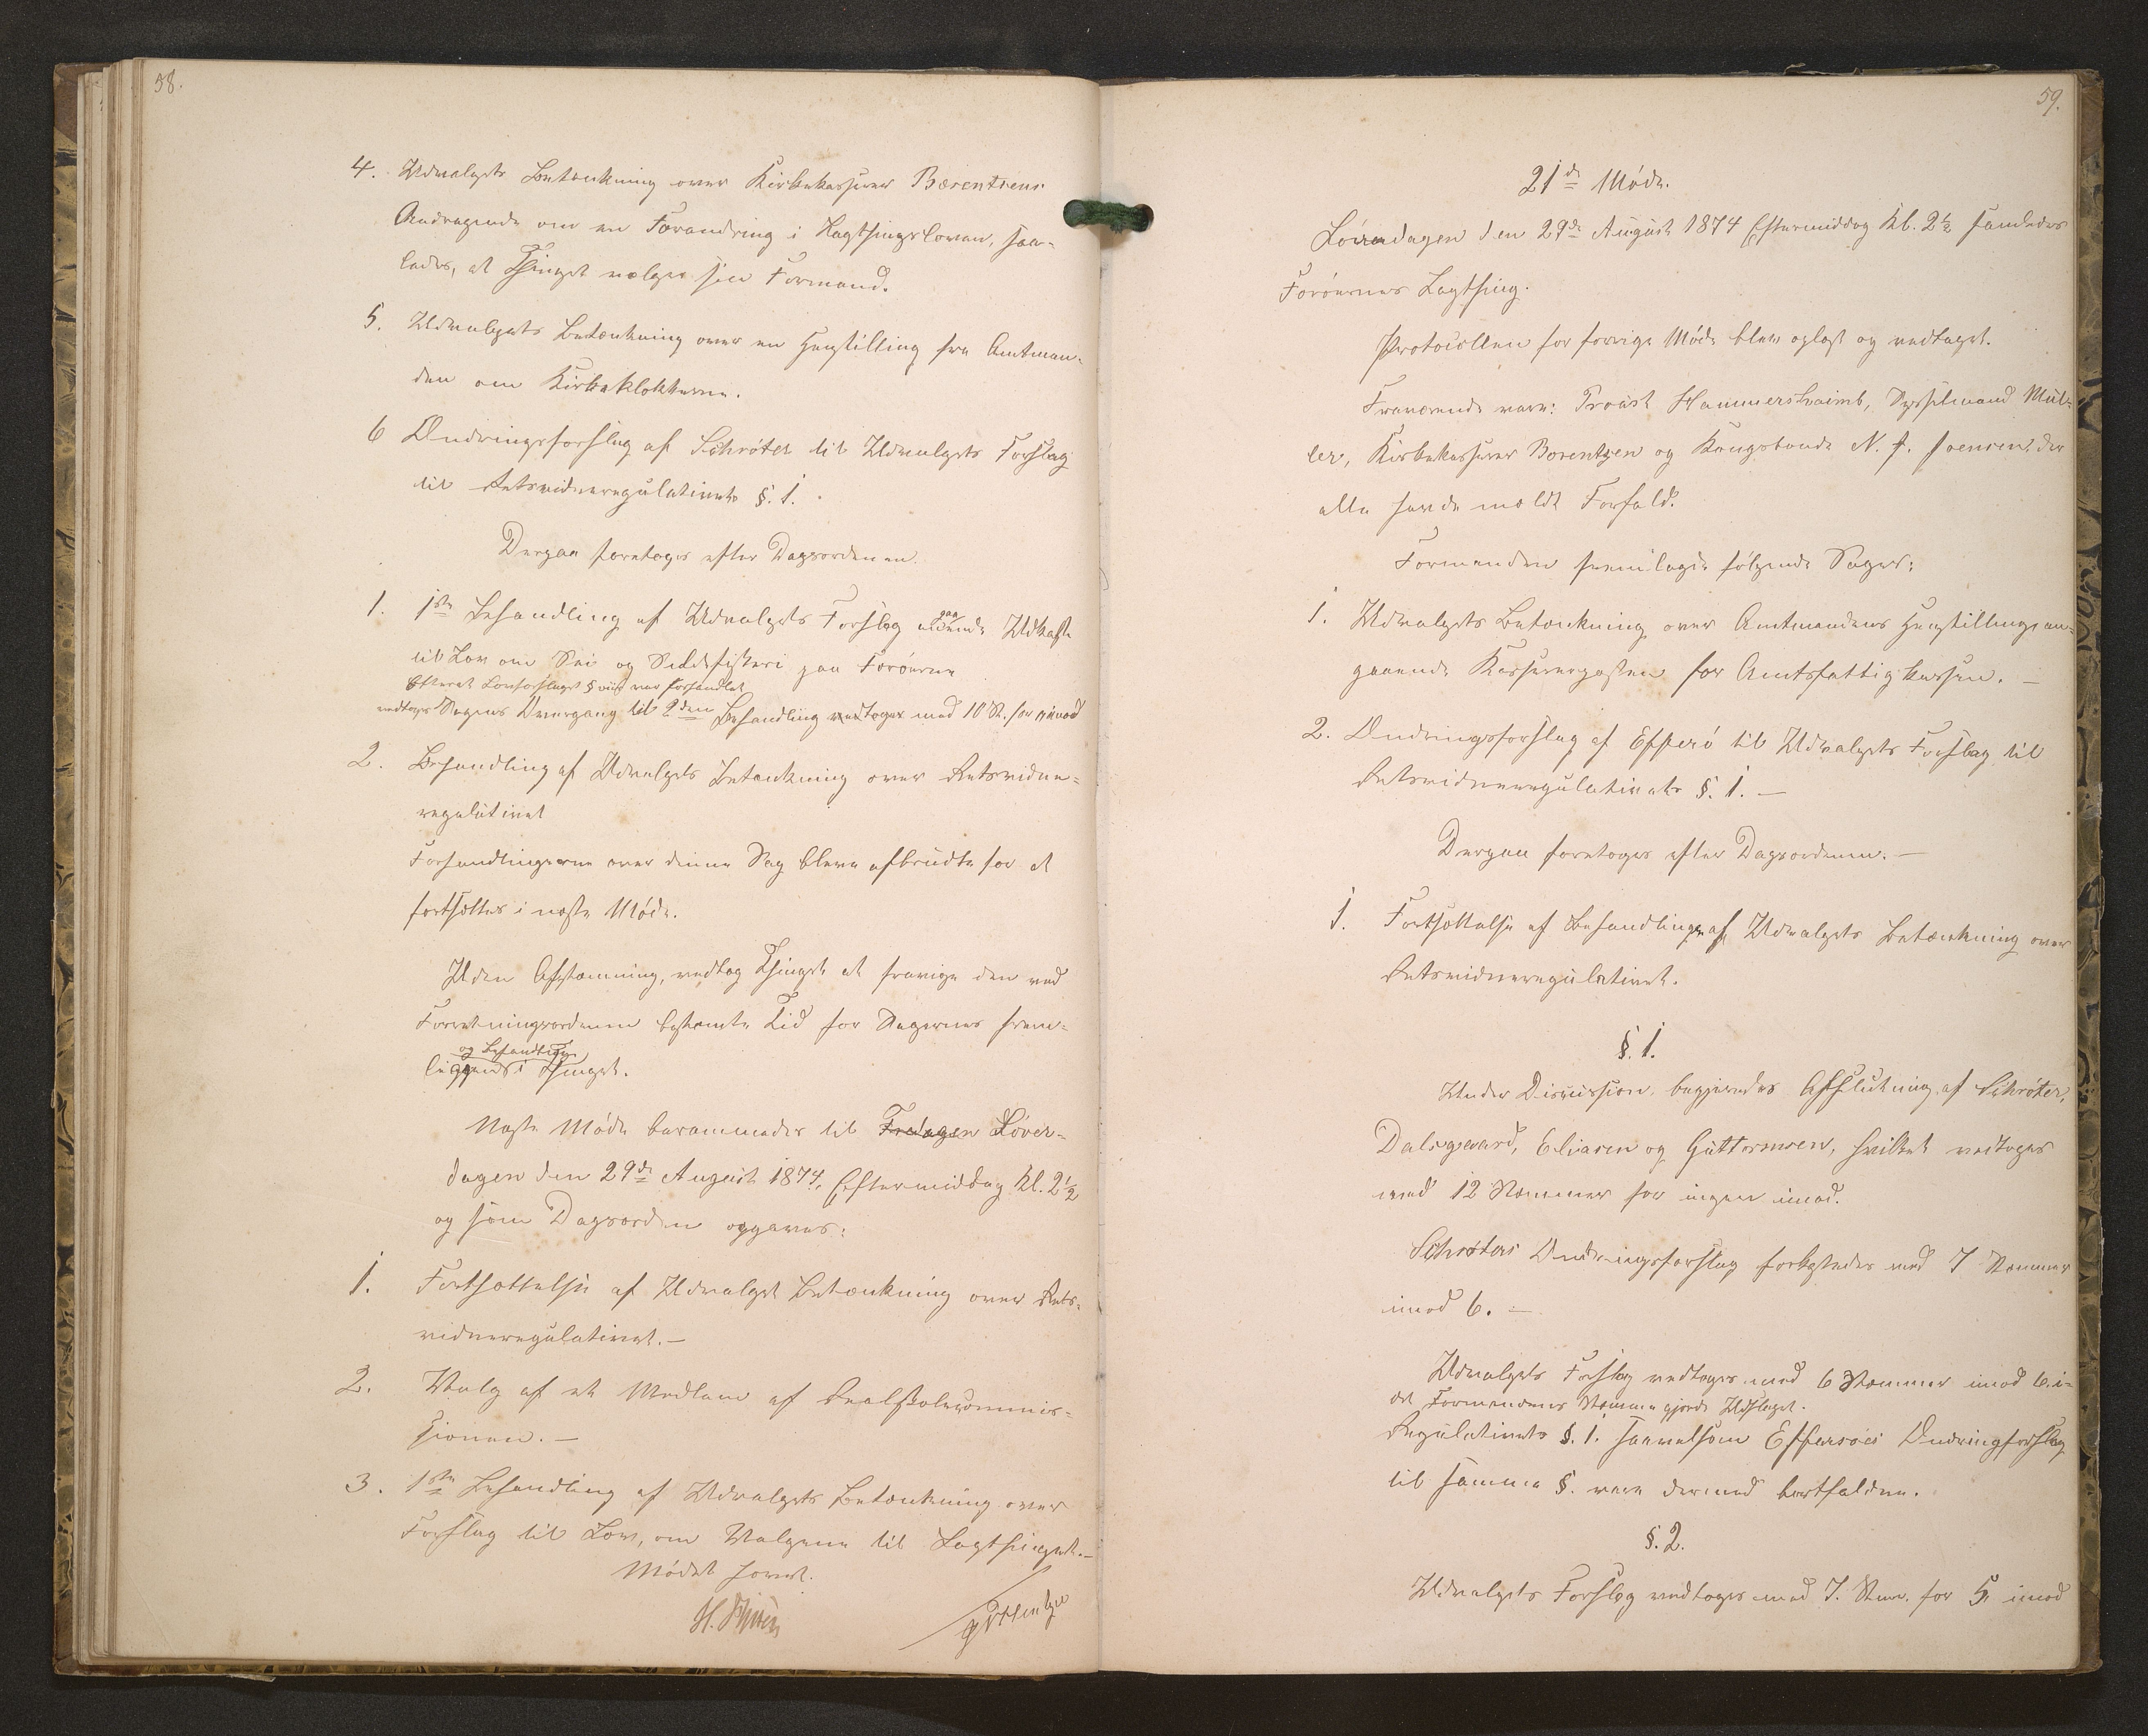 58.
4. Udvalgets Betænkning over Kirkekasserer Bærentsens
Andragende om en Forandring i Lagthingsloven, saa-
ledes, at Thinget vælger sin Formand.
5. Udvalgets Betænkning over en Henstilling fra Amtman-
den om Kirkeklokkerne.
6 Ændringsforslag af Schrøter til Udvalgets Forslag
til Retsvidneregulativets §. 1.
Derpaa foretoges efter Dagsordenen.
1. 1ste Behandling af Udvalgets Forslag Udkast
til Lov om Sei og Sildefiskeri paa Færøerne
Efterat Lovforslagets § viis var forhandlet
vedtoges Sagens Overgang til 2den Behandling vedtoges med 10 St. for imod
2. Behandling af Udvalgets Betænkning over Retsvidne-
regulativet
Forhandlingerne over denne Sag bleve afbrudte for at
fortsættes i næste Møde.
Uden Afstemning, vedtog Thinget at fravige den ved
Forretningsordenen bestemte Tid for Sagernes frem-
og Behandling
læggende i Thinget.
Næste Møde berammedes til Fredagen Løver-
dagen den 29de August 1874, Eftermiddag Kl. 2½
og som Dagsorden opgaves:
1. Fortsættelse af Udvalget Betænkning over Rets-
vidneregulativet. –
2. Valg af et Medlem af Realskolecommis-
sionen. –
3. 1ste Behandling af Udvalgets Betænkning over
Forslag til Lov, om Valgene til Lagthinget. –
Mødet hævet.
H.
59.
21de Møde.
Løverdagen den 29de August 1874 Eftermiddag Kl. 2½ samledes
Færøernes Lagthing.
Protocollen for forrige Møde blev oplæst og vedtaget.
Fraværende vare: Provst Hammershaimb, Sysselmand Mül-
ler, Kirkekasserer Bærentsen og Kongsbonde N. J. Joensen, der
alle havde meldt Forfald.
Formanden fremlagde følgende Sager:
1. Udvalgets Betænkning over Amtmandens Henstilling an-
gaaende Kassererposten for Amtsfattigkassen. –
2. Ændringsforslag af Effersø til Udvalgets Forslag til
Retsvidneregulativets §. 1. –
Derpaa foretoges efter Dagsordenen. –
1. Fortsættelse af Behandlingen af Udvalgets Betænkning over
Retsvidneregulativet.
§. 1.
Under Discussion begjæredes Afslutning af Schrøter,
Dalsgaard, Eliasen og Guttormsen, hvilket vedtoges
med 12 Stemmer for ingen imod.
Schrøters Ændringsforslag forkastedes med 7 Stemmer
imod 6. –
Udvalgets Forslag vedtoges med 6 Stemmer imod 6. i-
det Formandens Stemme gjorde Udslaget.
Regulativets §. 1. saavelsom Effersøes Ændringsforslag
til samme §. vare dermed bortfaldne.
§. 2.
Udvalgets Forslag vedtoges med 7. Stem. for 5 imod